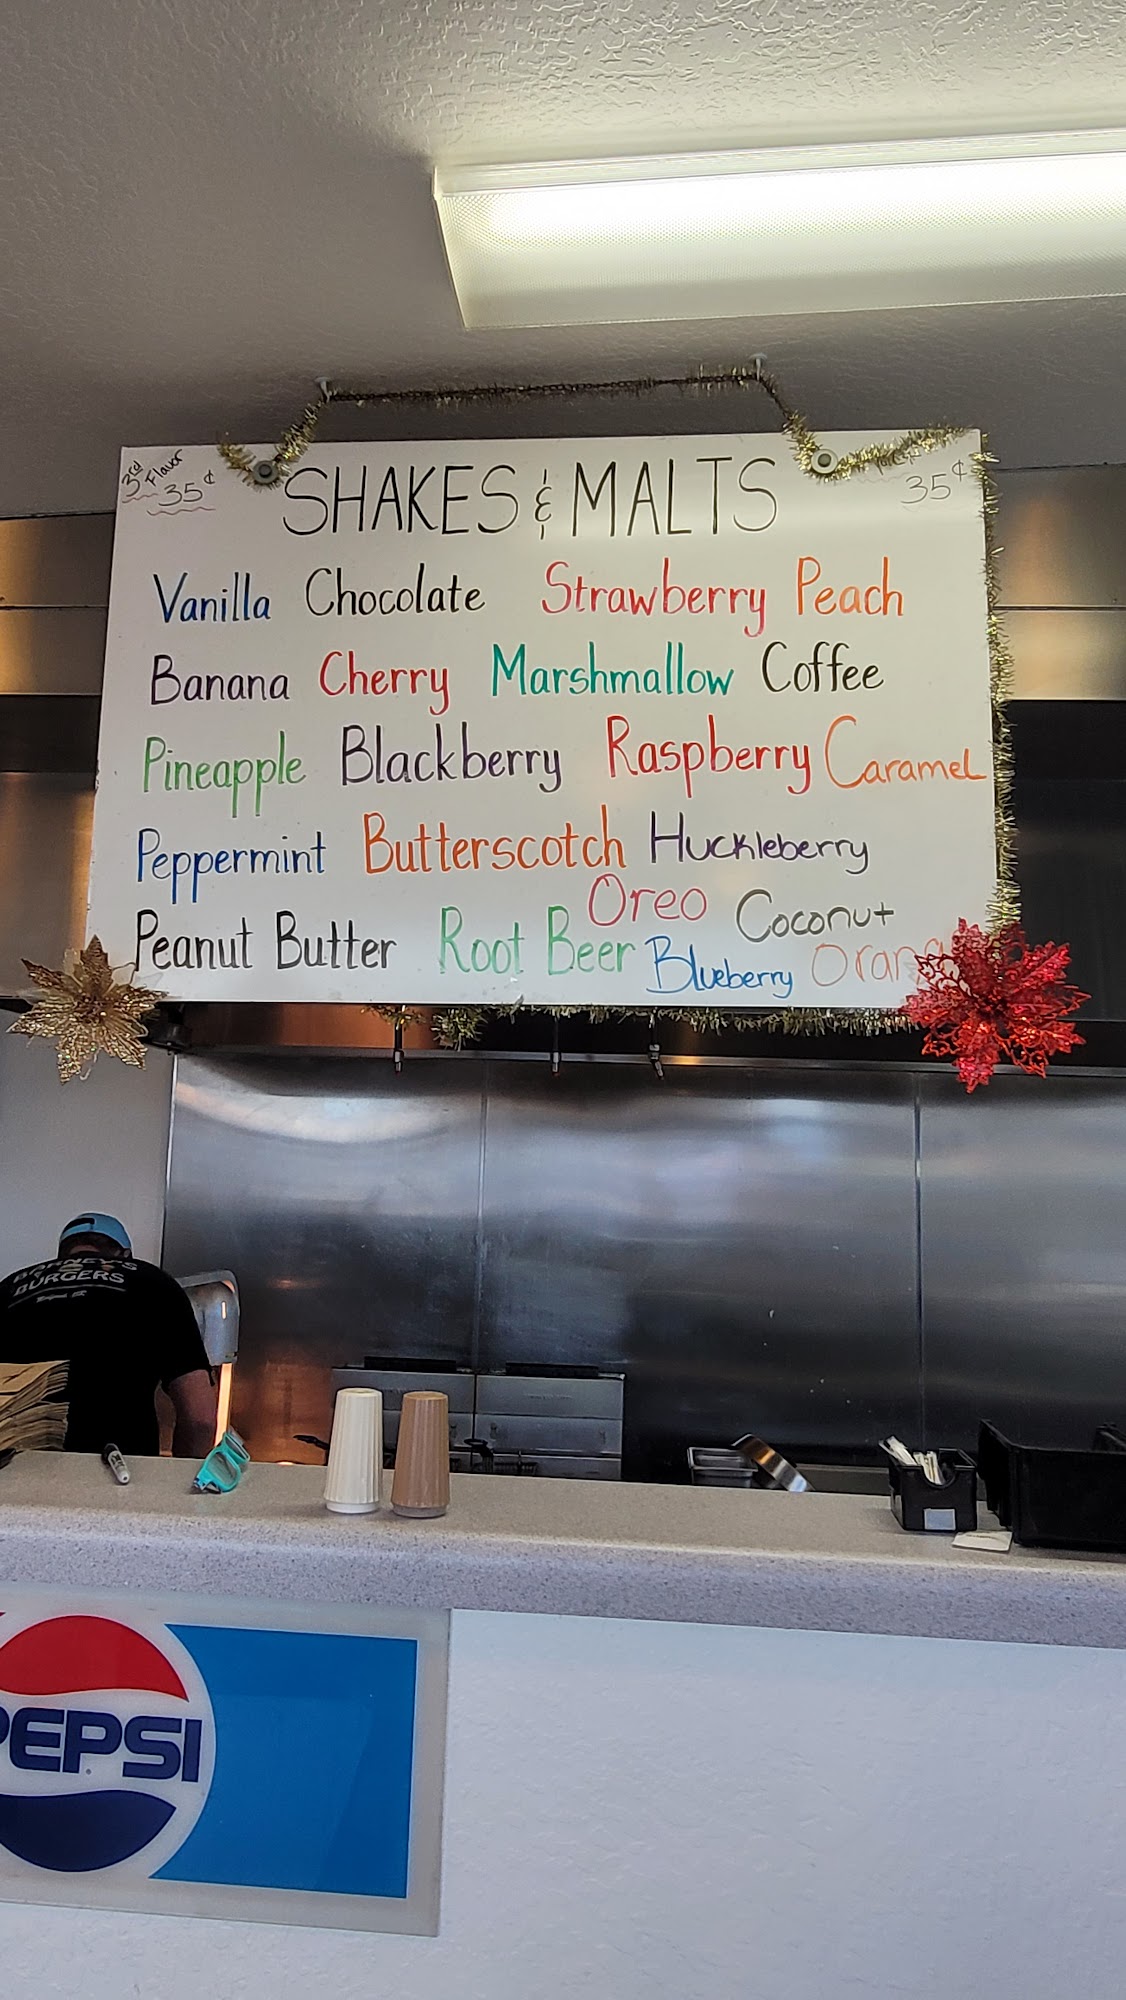 3rd Flavor 35¢
SHAKES & MALTS
35¢
Vanilla Chocolate Strawberry Peach
Banana Cherry Marshmallow Coffee
Pineapple Blackberry Raspberry Caramel
Peppermint Butterscotch Huckleberry
Oreo Coconut
Peanut Butter Root Beer Blueberry
BURGERS
PEPSI